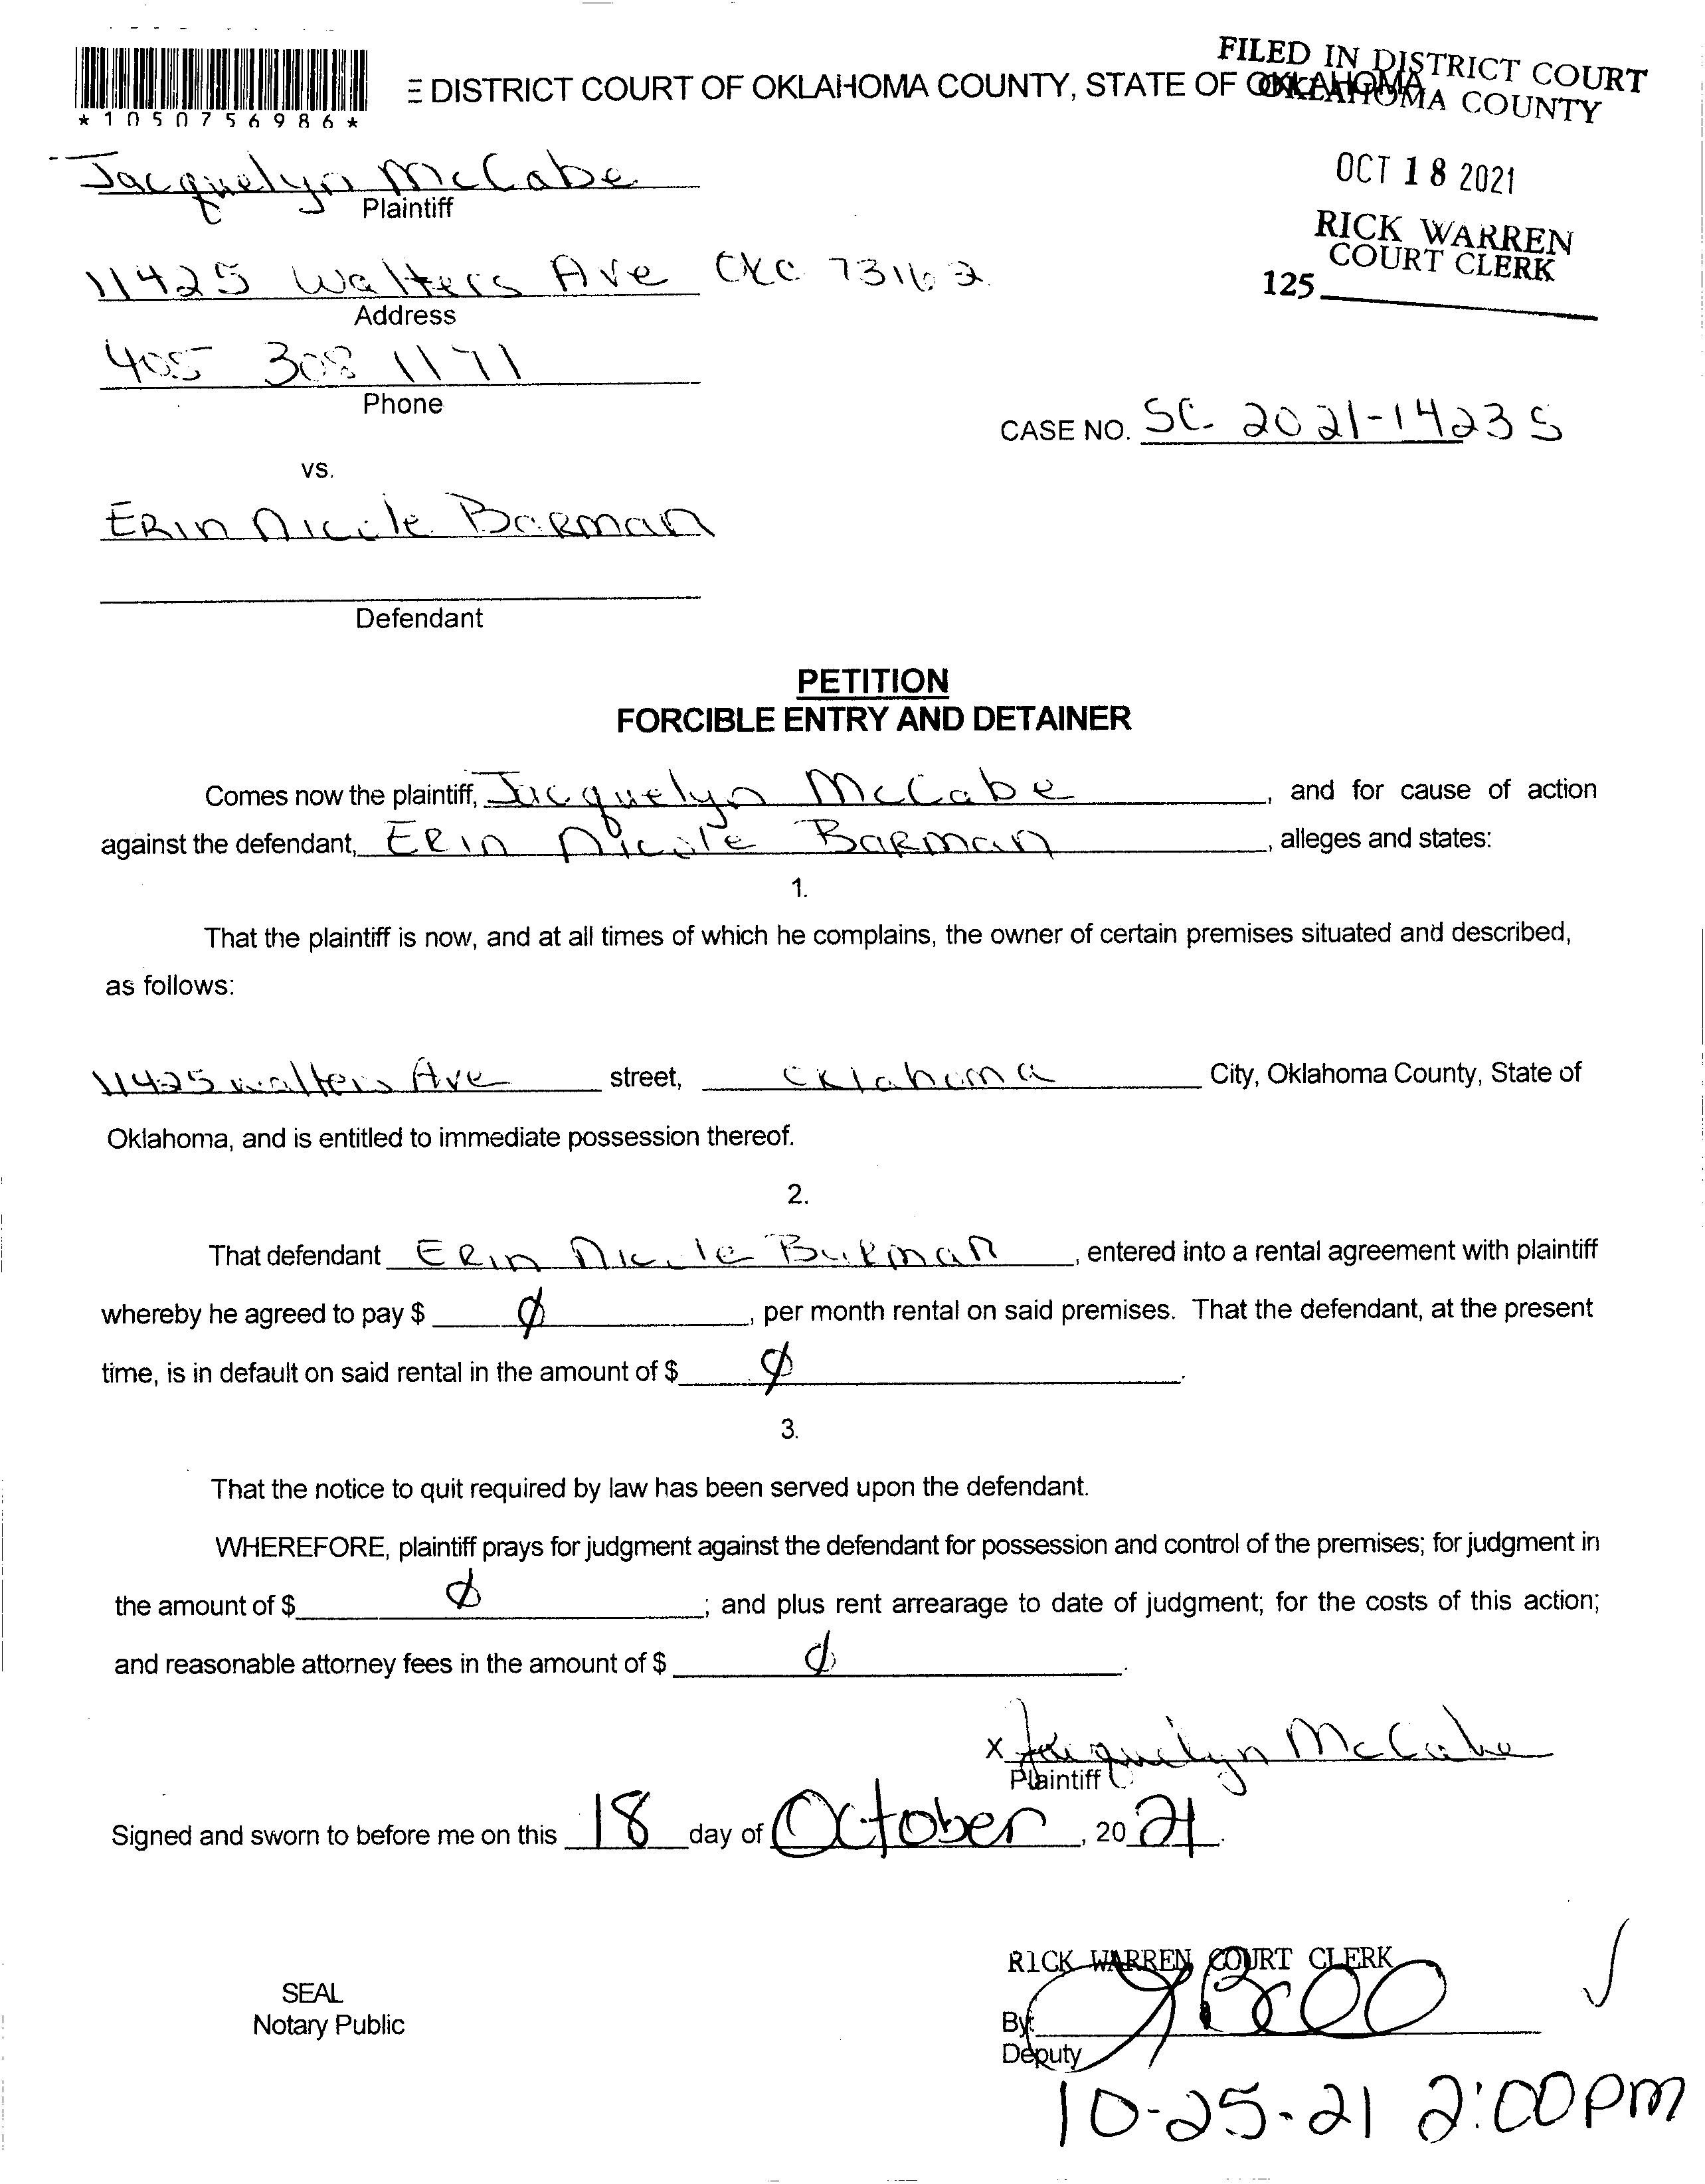 DISTRICT COURT OF OKLAHOMA COUNTY, STATE OF OKLAHOMA
FILED IN DISTRICT COURT
OKLAHOMA COUNTY
*1050756986*
OCT 18 2021
RICK WARREN
COURT CLERK
125
Jacquelyn McCabe
Plaintiff
11425 Walters Ave OKC 73162
Address
405 308 1171
Phone
CASE NO. SC 2021-14235
vs.
ERin Nicole BaRman
Defendant
PETITION
FORCIBLE ENTRY AND DETAINER
Comes now the plaintiff, Jacquelyn McCabe, and for cause of action
against the defendant, ERin Nicole BaRman, alleges and states:
1.
That the plaintiff is now, and at all times of which he complains, the owner of certain premises situated and described,
as follows:
11425 Walters Ave street, Oklahoma City, Oklahoma County, State of
Oklahoma, and is entitled to immediate possession thereof.
2.
That defendant ERin Nicole BaRman, entered into a rental agreement with plaintiff
whereby he agreed to pay $ Ø, per month rental on said premises. That the defendant, at the present
time, is in default on said rental in the amount of $ Ø.
3.
That the notice to quit required by law has been served upon the defendant.
WHEREFORE, plaintiff prays for judgment against the defendant for possession and control of the premises; for judgment in
the amount of $ Ø; and plus rent arrearage to date of judgment; for the costs of this action;
and reasonable attorney fees in the amount of $ Ø.
X Jacquelyn McCabe
Plaintiff
Signed and sworn to before me on this 18 day of October, 2021.
RICK WARREN COURT CLERK
SEAL
Notary Public
By:
Deputy
10-25-21 2:00pm